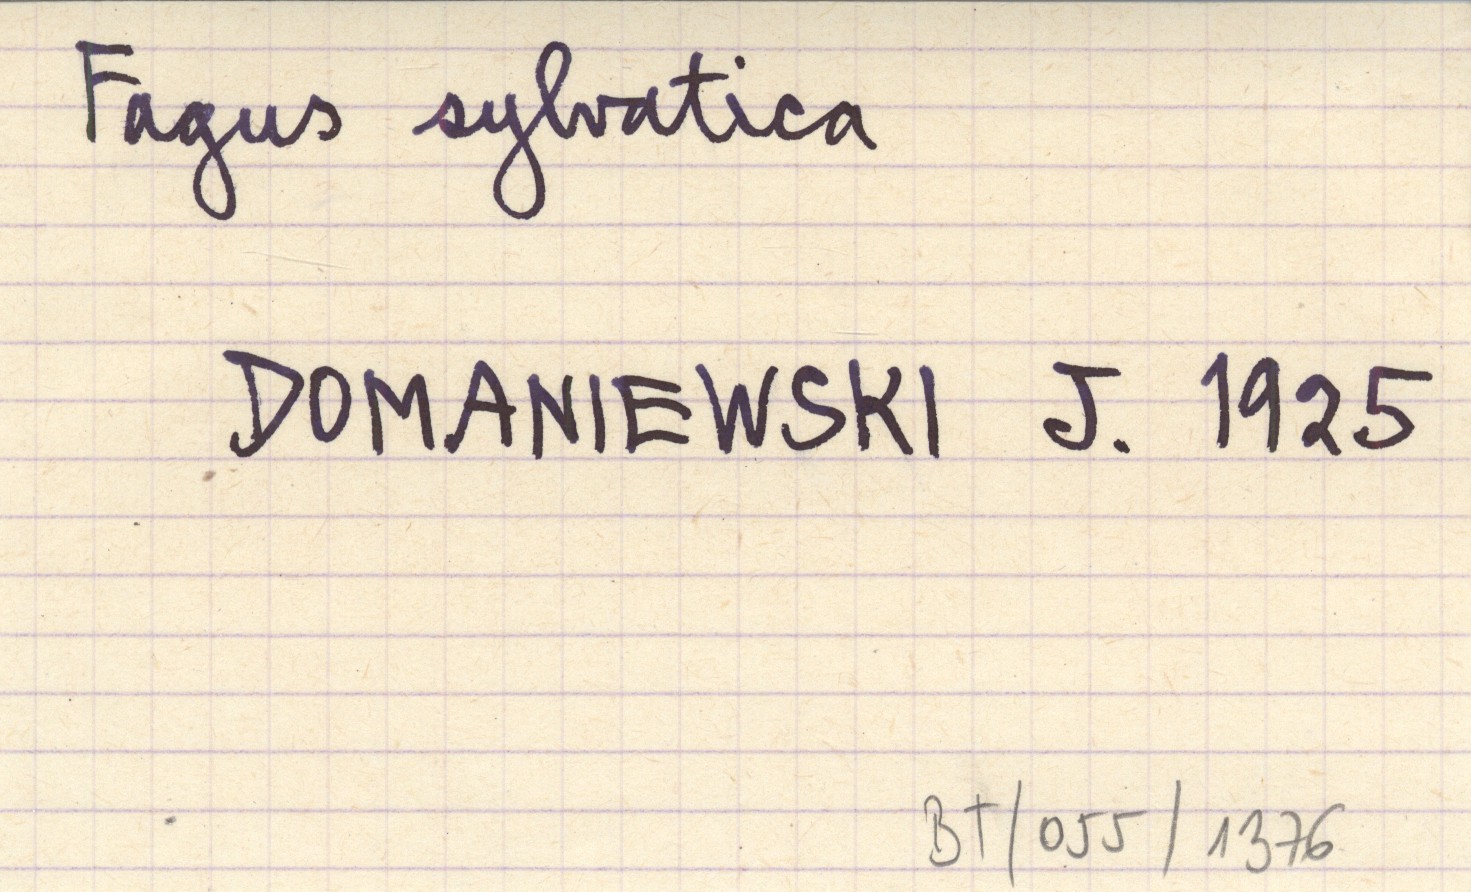 Fagus sylvatica
DOMANIEWSKI J. 1925
BT/055/1376